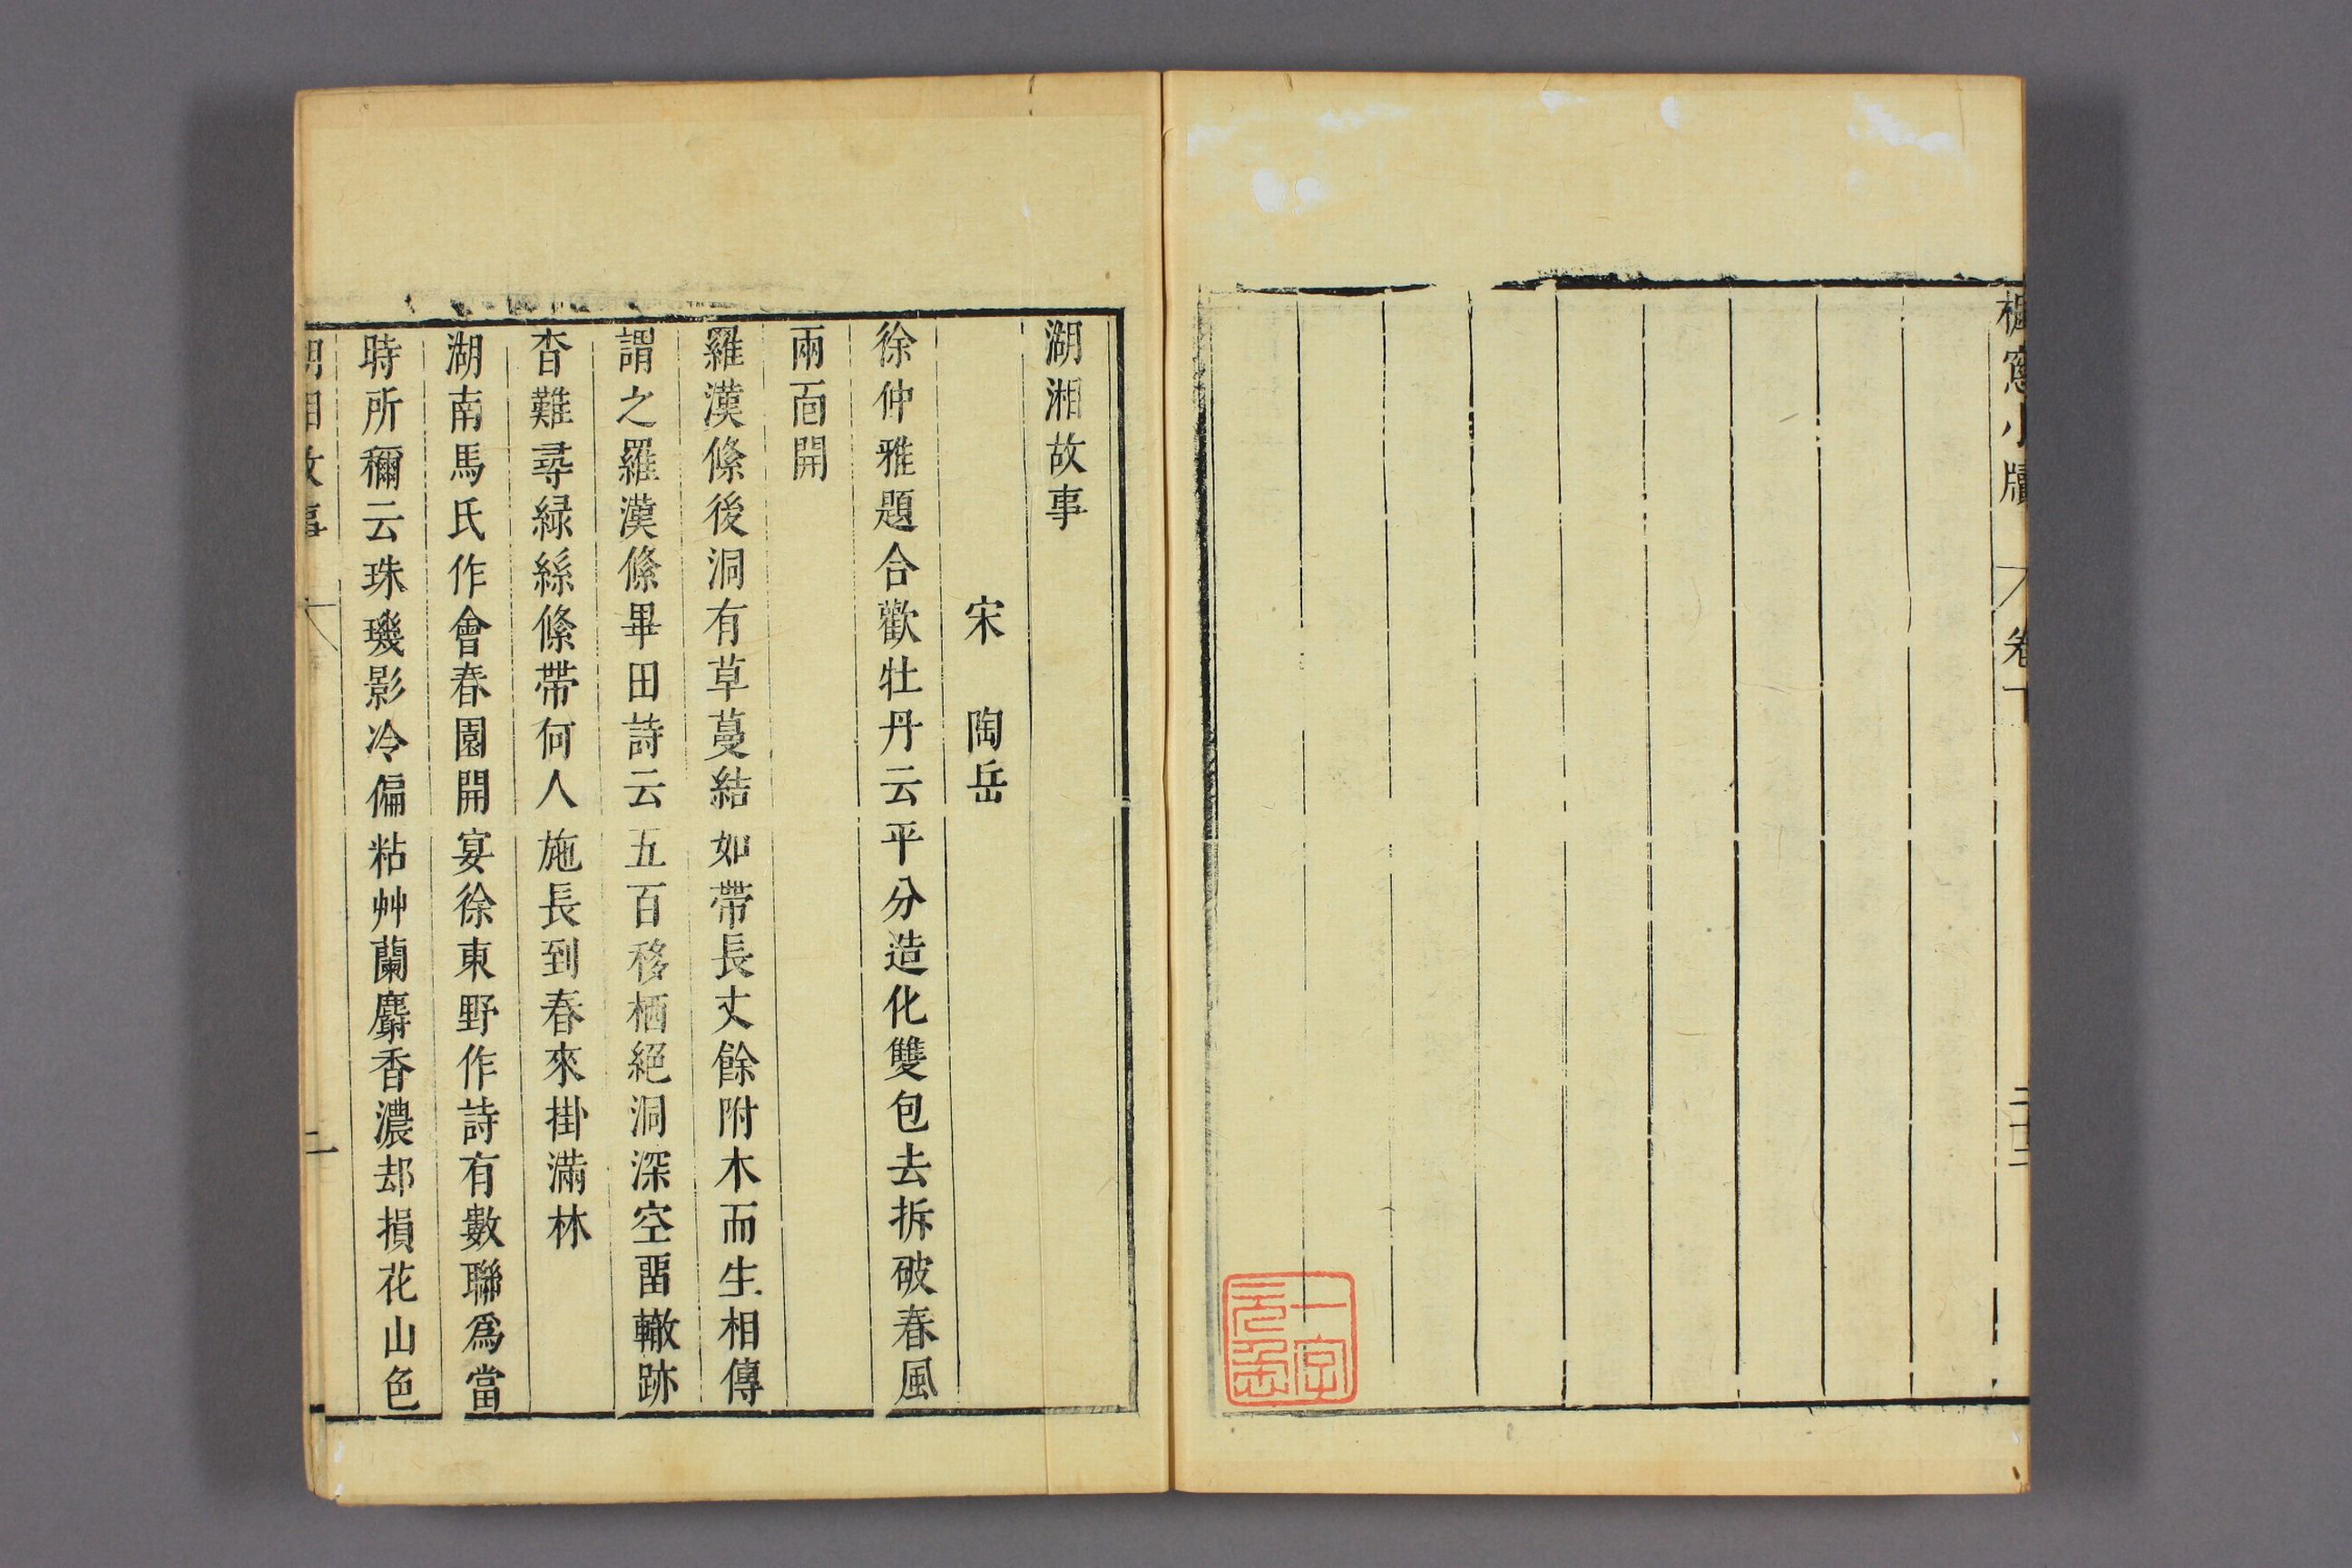 窻小牘
卷下
湖湘故事
宋　陶岳
徐仲雅題合歡牡丹云平分造化雙包去拆破春風
兩靣開
羅漢絛後洞有草蔓結如帶長丈餘附木而生相傳
謂之羅漢絛畢田詩云五百移栖絕洞深空畱轍跡
杳難尋緑絲絛帶何人施長到春來掛滿林
湖南馬氏作會春園開宴徐東野作詩有數聯爲當
時所穪云珠璣影冷偏粘艸蘭麝香濃却損花山色
湖湘故事
一